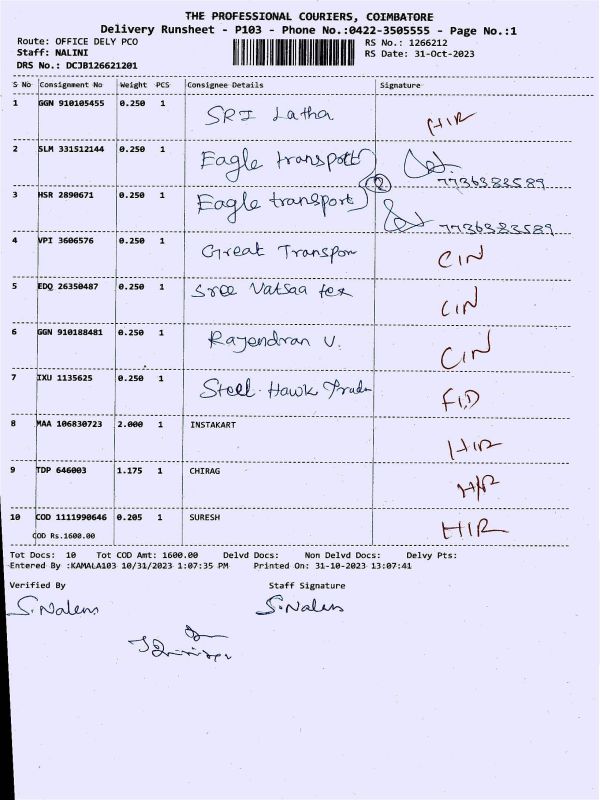 THE PROFESSIONAL COURIERS, COIMBATORE
Delivery Runsheet - P103 - Phone No.:0422-3505555 - Page No.:1
Route: OFFICE DELY PCO
RS No.: 1266212
Staff: NALINI
RS Date: 31-Oct-2023
DRS No.: DCJB126621201
S No Consignment No Weight PCS Consignee Details Signature
1 GGN 910105455 0.250 1 SRI Latha HIR
2 SLM 331512144 0.250 1 Eagle transport 7736383589
3 HSR 2890671 0.250 1 Eagle transport 2 7736383589
4 VPI 3606576 0.250 1 Great Transpor CIN
5 EDQ 26350487 0.250 1 Sree Vatsaa tex CIN
6 GGN 910188481 0.250 1 Rajendran V. CIN
7 IXU 1135625 0.250 1 Steel Hawk Trade FID
8 MAA 106830723 2.000 1 INSTAKART HIR
9 TDP 646003 1.175 1 CHIRAG HIR
10 COD 1111990646 0.205 1 SURESH HIR
COD Rs.1600.00
Tot Docs: 10 Tot COD Amt: 1600.00 Delvd Docs: Non Delvd Docs: Delvy Pts:
Entered By :KAMALA103 10/31/2023 1:07:35 PM Printed On: 31-10-2023 13:07:41
Verified By Staff Signature
S. Nalens S. Nalens